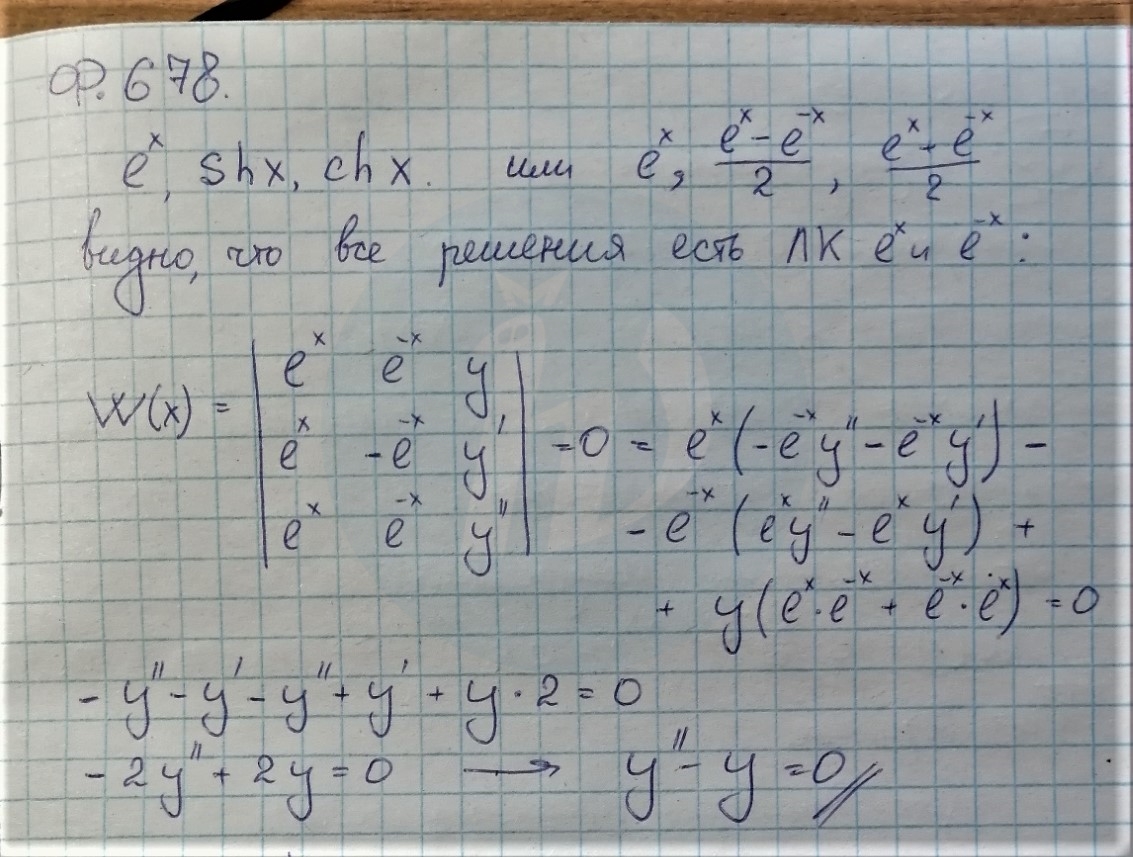 Ф. 678.
e^x, sh x, ch x. или e^x, (e^x - e^-x)/2, (e^x + e^-x)/2
видно, что все решения есть ЛК e^x и e^-x :
W(x) = | e^x e^-x y |
| e^x -e^-x y' | = 0 = e^x (-e^-x y'' - e^-x y') -
| e^x e^-x y'' | - e^-x (e^x y'' - e^x y') +
+ y (e^x · e^-x + e^-x · e^x) = 0
- y'' - y' - y'' + y' + y · 2 = 0
- 2y'' + 2y = 0 → y'' - y = 0 //